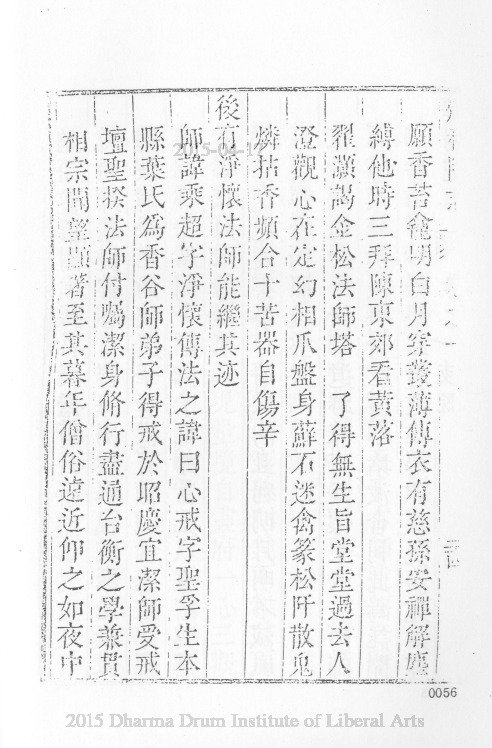 願香苔龕明白月穿叢薄傳衣有慈孫安禪解塵
縛他時三拜陳東郊看黃落
翟灝謁金松法師塔　了得無生旨堂堂過去人
澄觀心在定幻相爪盤身蘚石迷禽篆松阡散鬼
燐拈香頻合十苦器自傷辛
後有淨懷法師能繼其迹
師諱乘超字淨懷傳法之諱曰心戒字聖孚生本
縣葉氏為香谷師弟子得戒於昭慶宜潔師受戒
壇聖揆法師付囑潔身脩行盡通台衡之學兼貫
相宗聞望顯著至其暮年僧俗遠近仰之如夜中
0056
2015 Dharma Drum Institute of Liberal Arts